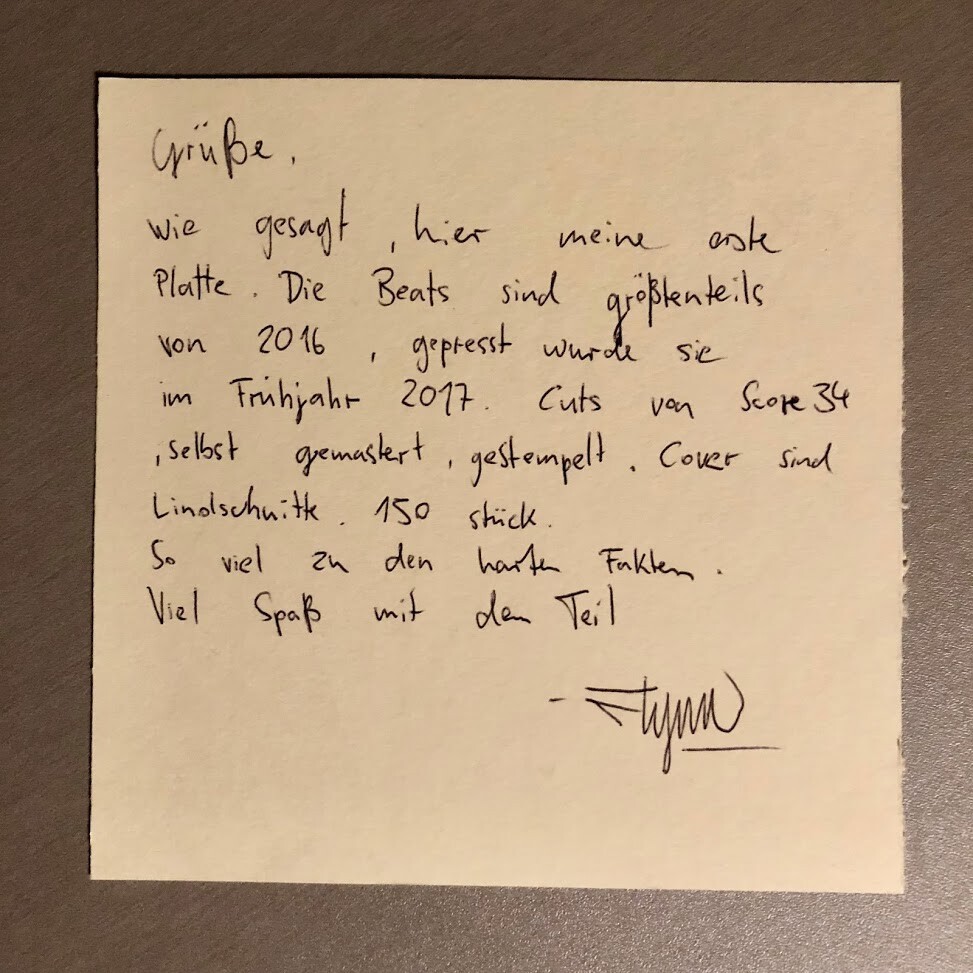 Grüße,
wie gesagt, hier meine erste
Platte. Die Beats sind größtenteils
von 2016, gepresst wurde sie
im Frühjahr 2017. Cuts von Score34
, selbst gemastert, gestempelt. Cover sind
Linolschnitte. 150 stück.
So viel zu den harten Fakten.
Viel Spaß mit dem Teil
- Flynn